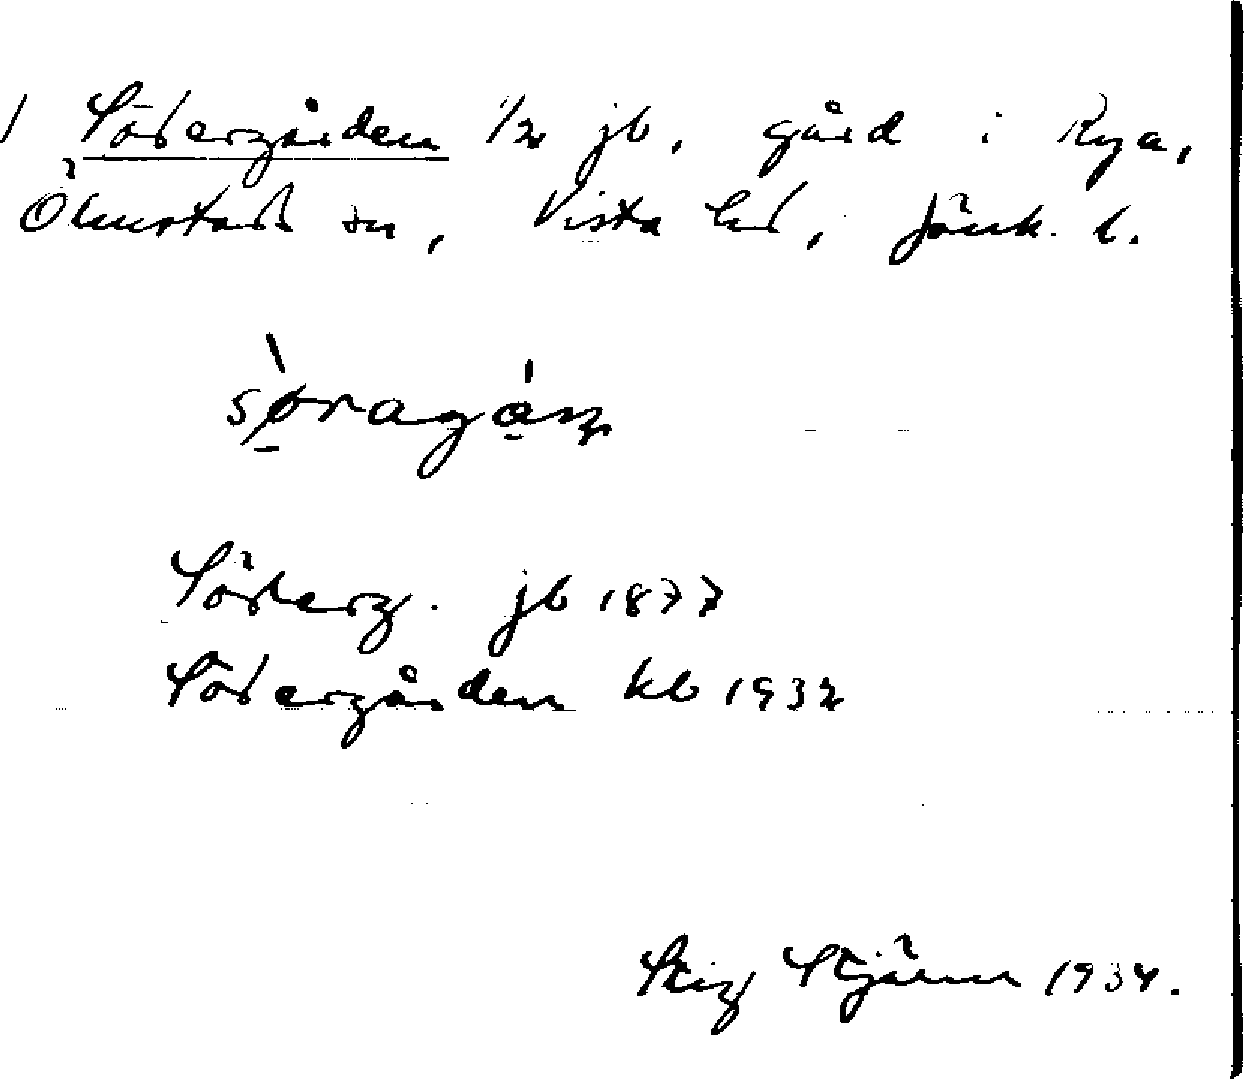 Södergården 1/2 jb, gård i Rya,
Ölmstads sn, Vista hd, Jönk. l.
sø̀ragán
Söderg. jb 1877
Södergården kb 1932
Stig Stjärne 1934.